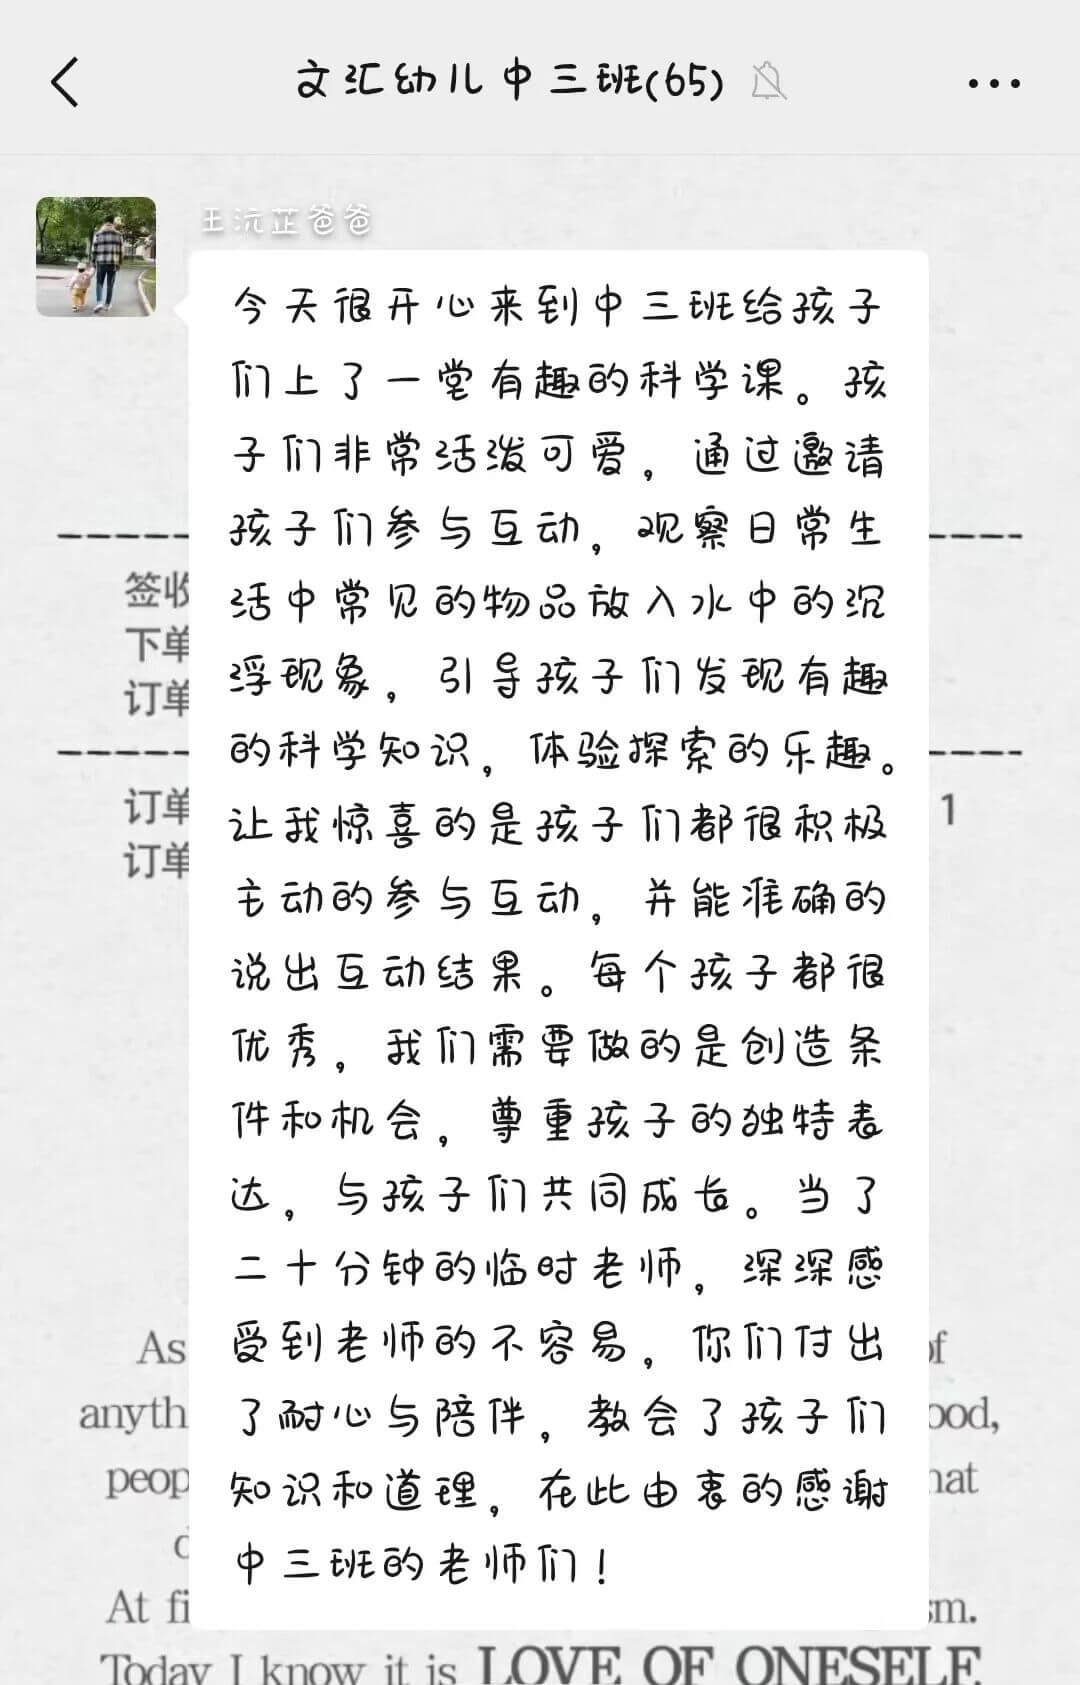 文汇幼儿中三班(65)
王沅芷爸爸
今天很开心来到中三班给孩子
们上了一堂有趣的科学课。孩
子们非常活泼可爱，通过邀请
孩子们参与互动，观察日常生
活中常见的物品放入水中的沉
浮现象，引导孩子们发现有趣
的科学知识，体验探索的乐趣。
让我惊喜的是孩子们都很积极
主动的参与互动，并能准确的
说出互动结果。每个孩子都很
优秀，我们需要做的是创造条
件和机会，尊重孩子的独特表
达，与孩子们共同成长。当了
二十分钟的临时老师，深深感
受到老师的不容易，你们付出
了耐心与陪伴，教会了孩子们
知识和道理，在此由衷的感谢
中三班的老师们！
签收
下单
订单
订单 1
订单
As of
anyth ood,
peop hat
At fi sm.
Today I know it is LOVE OF ONESELF